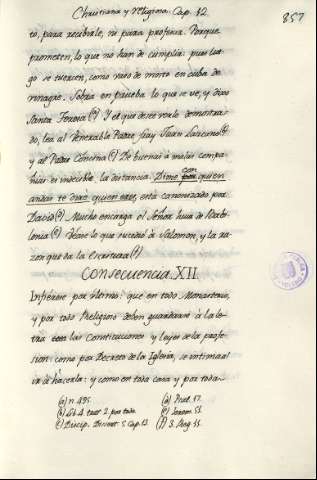 Christiana y Religiosa. Cap. 12.
857
to, para recibirle, ni para professar. Porque
prometen, lo que no han de cumplir: pues lue-
go se tuercen, como vaso de mosto en cuba de
vinagre. Sobra en prueba lo que se ve, y dixo
Santa Teresa (a) Y el que desee verlo demostra-
do, lea al Venerable Padre fray Juan Taulero (b)
y al Padre Concina (c) De buenas à malas compa-
ñias es indecible la distancia. Dime con quien
andas te diré quien eres, està canonizado por
David (d). Mucho encarga el Señor huir de Babi-
lonia (e) Vease lo que sucedió à Salomon, y la ra-
zon que da la Escritura (f)
Consecuencia XII.
Infierese por ultimo: que en todo Monasterio,
y por todo Religioso deben guardarse à la le-
tra las Constituciones y leyes de la profe-
sion: como por Decreto de la Iglesia, se intima al
ir à hacerla: y como en toda casa y por toda
(a) n. 495.
(b) lib. 4. tom. 2. por todo.
(c) Discip. Monast. Cap. 13.
(d) Psal. 17.
(e) Jerem. 51.
(f) 3. Reg. 11.